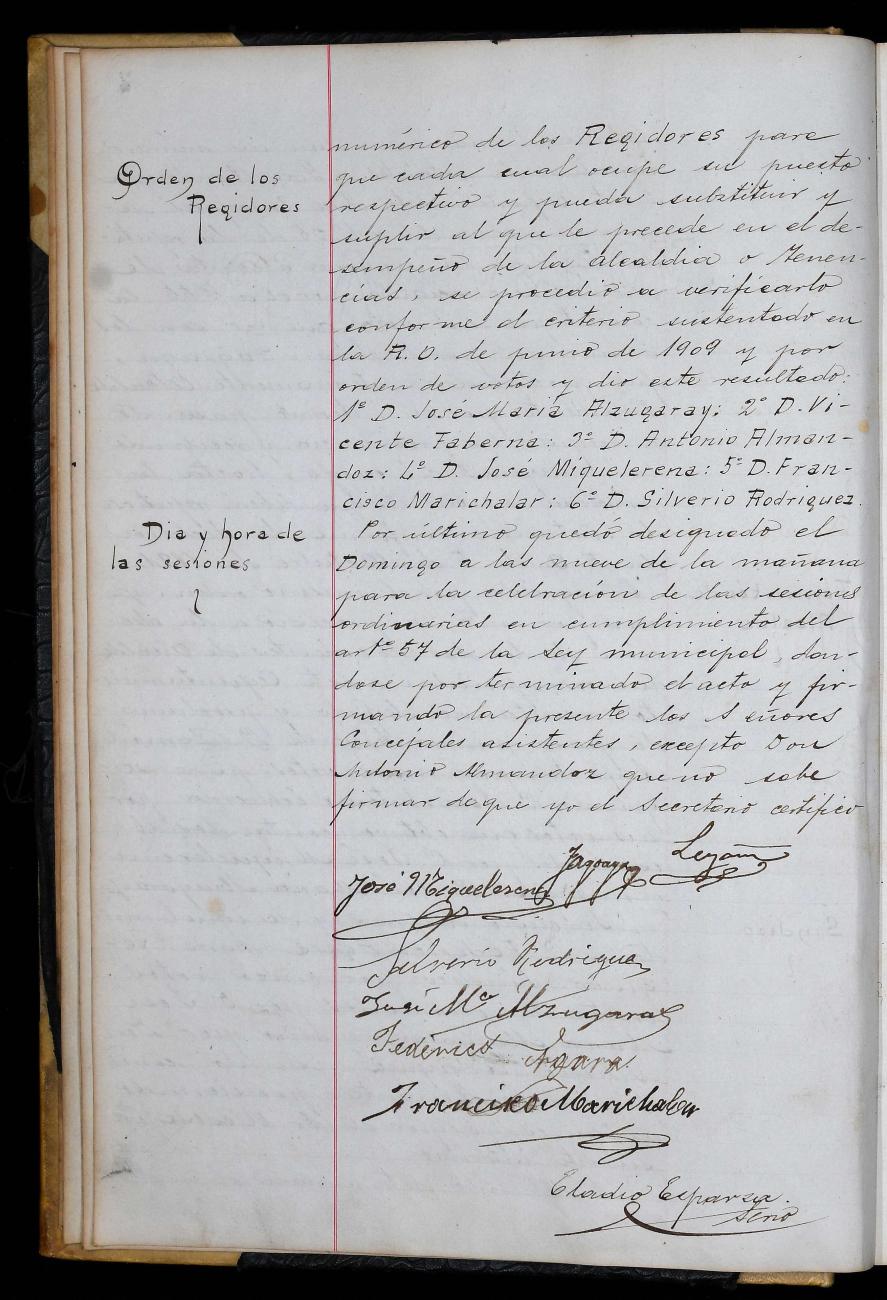 numérico de los Regidores para
Orden de los
Regidores
que cada cual ocupe su puesto
respectivo y pueda substituir y
suplir al que le precede en el de-
sempeño de la alcaldia o Tenen-
cías, se procedió a verificarlo
conforme el criterio sustentado en
la R. O. de junio de 1909 y por
orden de votos y dio este resultado:
1º D. José María Alzugaray: 2º D. Vi-
cente Taberna: 3º D. Antonio Alman-
doz: 4º D. José Miquelerena: 5º D. Fran-
cisco Marichalar: 6º D. Silverio Rodriguez.
Dia y hora de
las sesiones
Por último quedó designado el
Domingo a las nueve de la mañana
para la celebración de las sesiones
ordinarias en cumplimiento del
artº 57 de la Ley municipal, dan-
dose por terminado el acto y fir-
mando la presente los Señores
Concejales asistentes, excepto Don
Antonio Almandoz que no sabe
firmar de que yo el Secretario certifico
José Miquelerena
Silverio Rodriguez
José Mª Alzugaray
Federico
Francisco Marichalar
Eladio Esparza
Srio